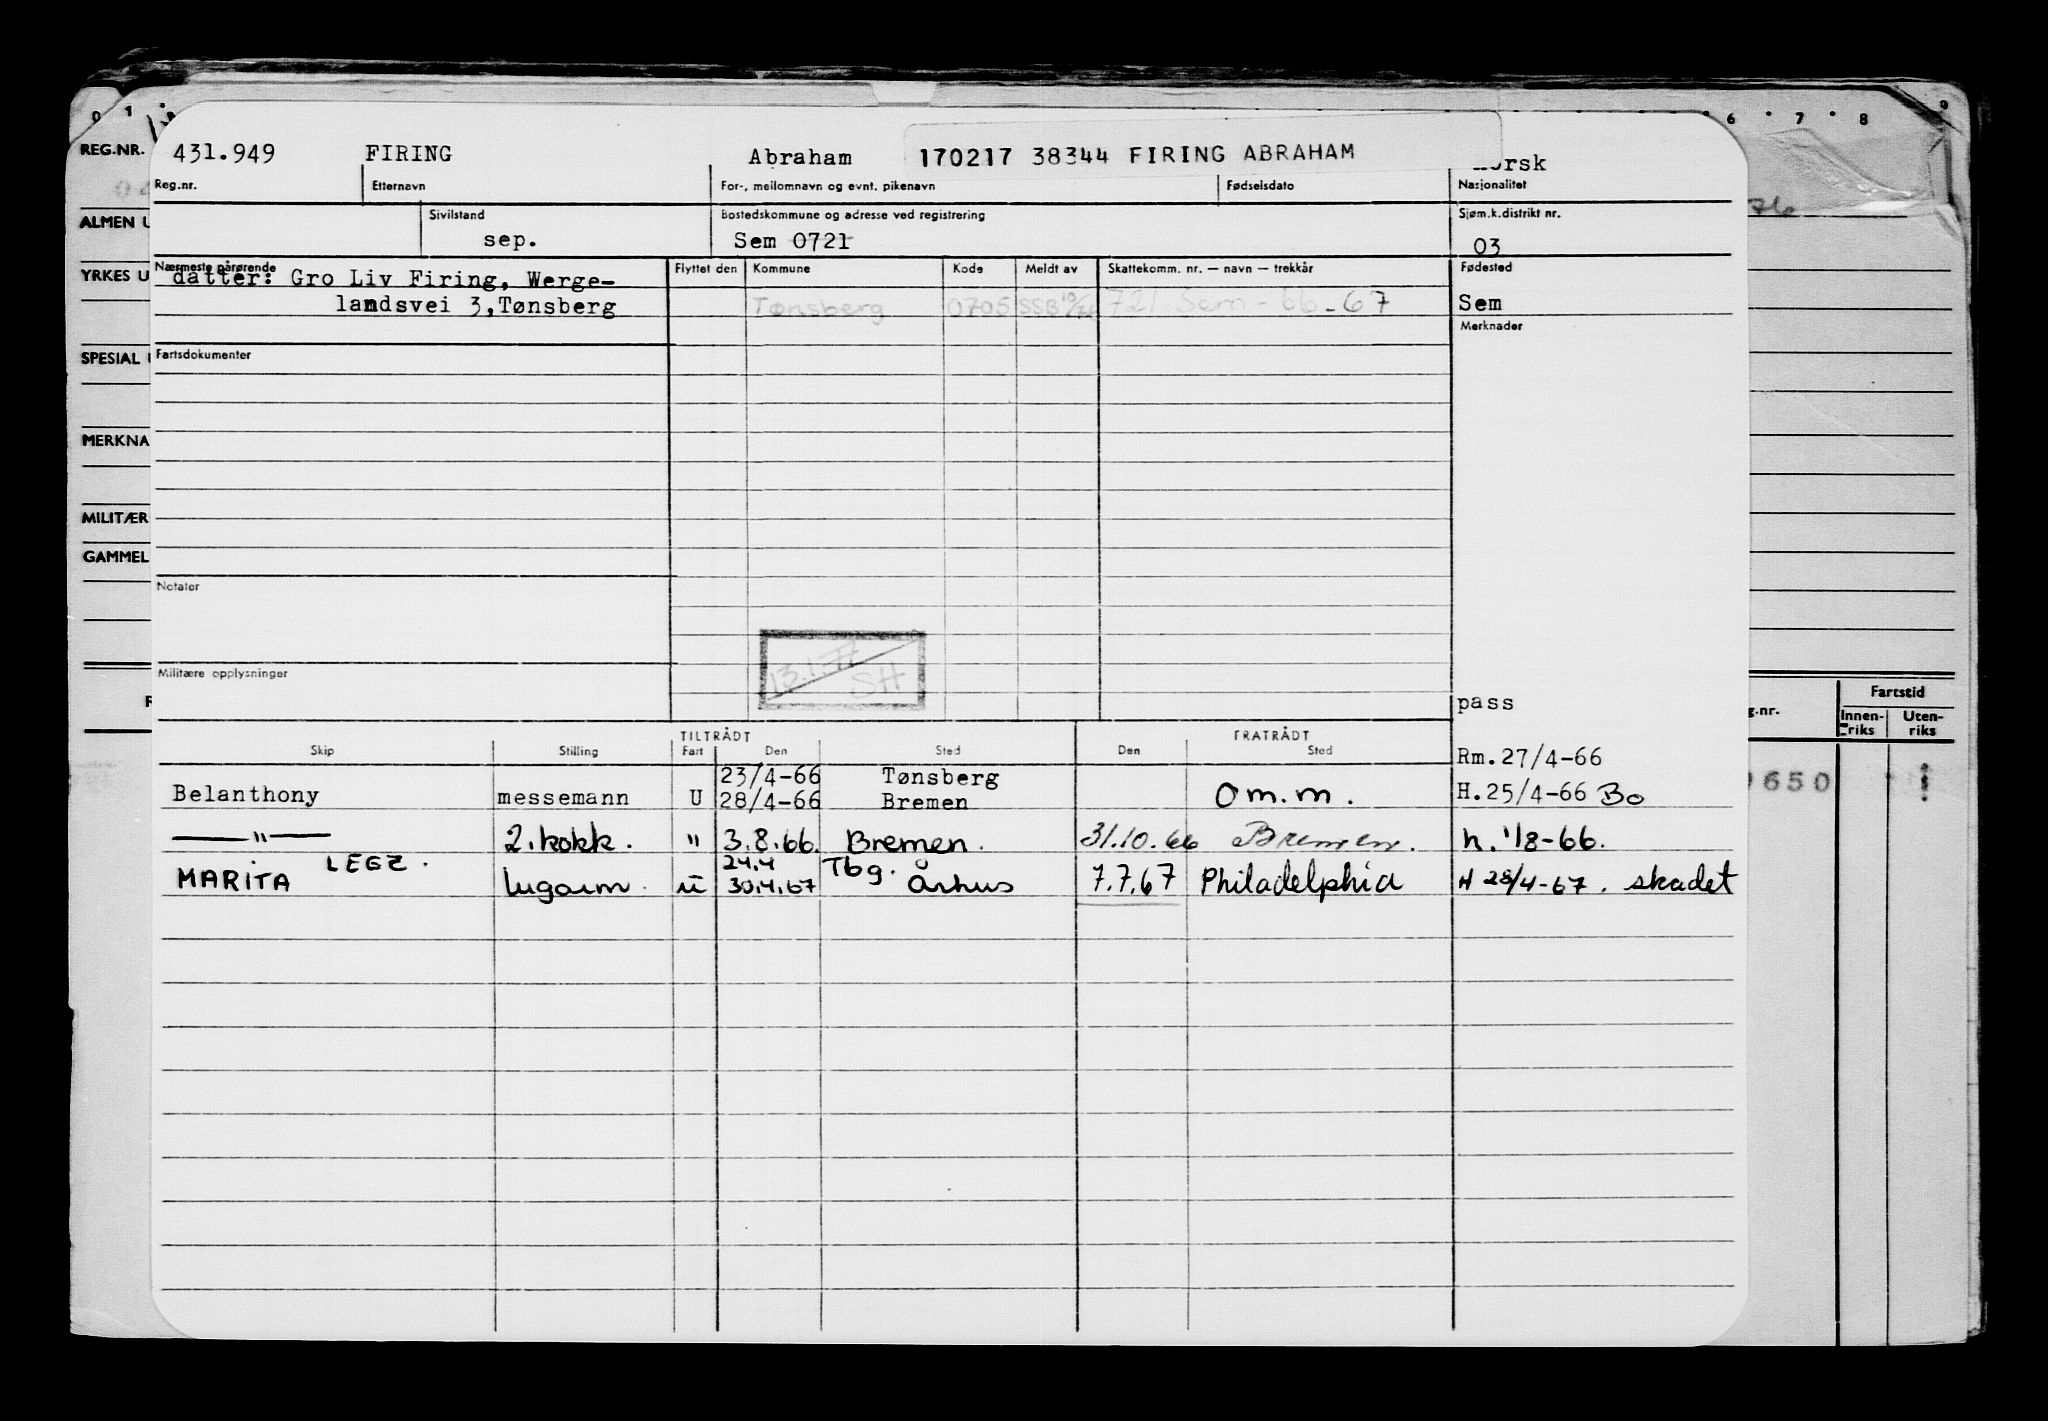 0 1 6 7 8 9
REG.NR. 431.949 FIRING Abraham 170217 38344 FIRING ABRAHAM orsk
Reg.nr. Etternavn For-, mellomnavn og evnt. pikenavn Fødselsdato Nasjonalitet
ALMEN U Sivilstand Bostedskommune og adresse ved registrering Sjøm.k.distrikt nr.
sep. Sem 0721 03
YRKES U Nærmeste pårørende Flyttet den Kommune Kode Meldt av Skattekomm. nr. — navn — trekkår Fødested
datter: Gro Liv Firing, Werge-
landsvei 3,Tønsberg Tønsberg 0705 SSB 721 Sem - 66 - 67 Sem
Merknader
SPESIAL Fartsdokumenter
MERKNA
MILITÆR
GAMMEL
Notater
13.1.77
SH
Militære opplysninger
pass
g.nr. Fartstid
Innen-riks Uten-riks
TILTRÅDT FRATRÅDT
Skip Stilling Fart Den Sted Den Sted
Rm.27/4-66
23/4-66 Tønsberg
Belanthony messemann U 28/4-66 Bremen Om.m. H.25/4-66 Bo
650
—"— 2.kokk. " 3.8.66. Bremen. 31.10.66 Bremen. h. 1/8-66.
LEGZ. 24.4 Tbg.
MARITA lugarm. u 30.4.67 Århus 7.7.67 Philadelphia H 28/4-67. skadet